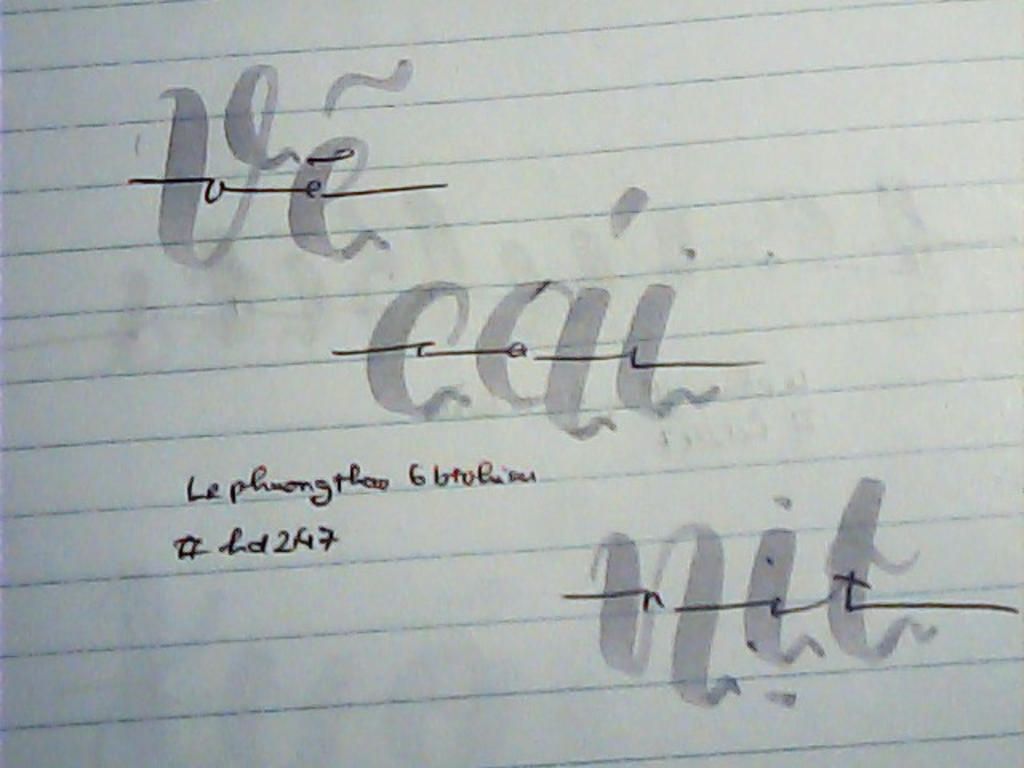 Vẽ
vẽ
cái
cai
nịt
nịt
Le phuongthao 6
# hd247